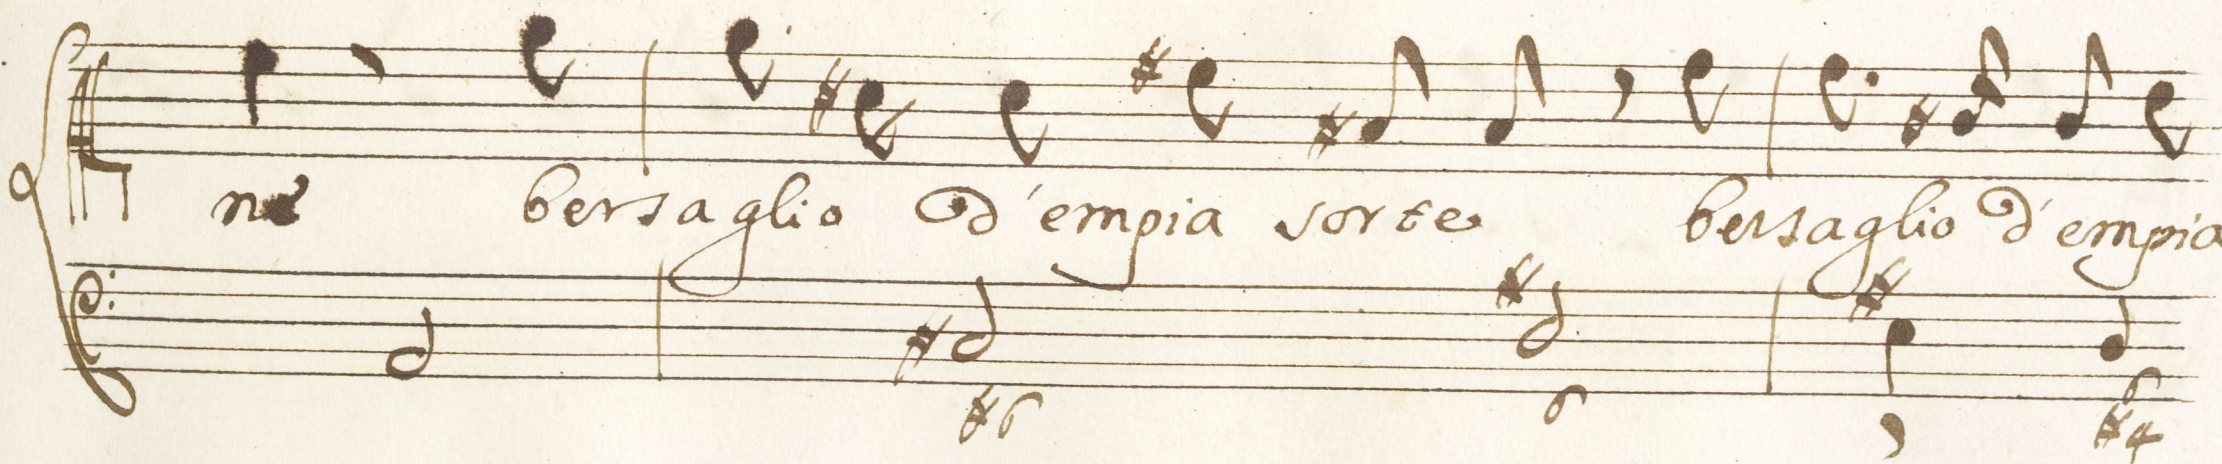 ne bersaglio d'empia sorte bersaglio d'empia
#6 6 7 6
#4